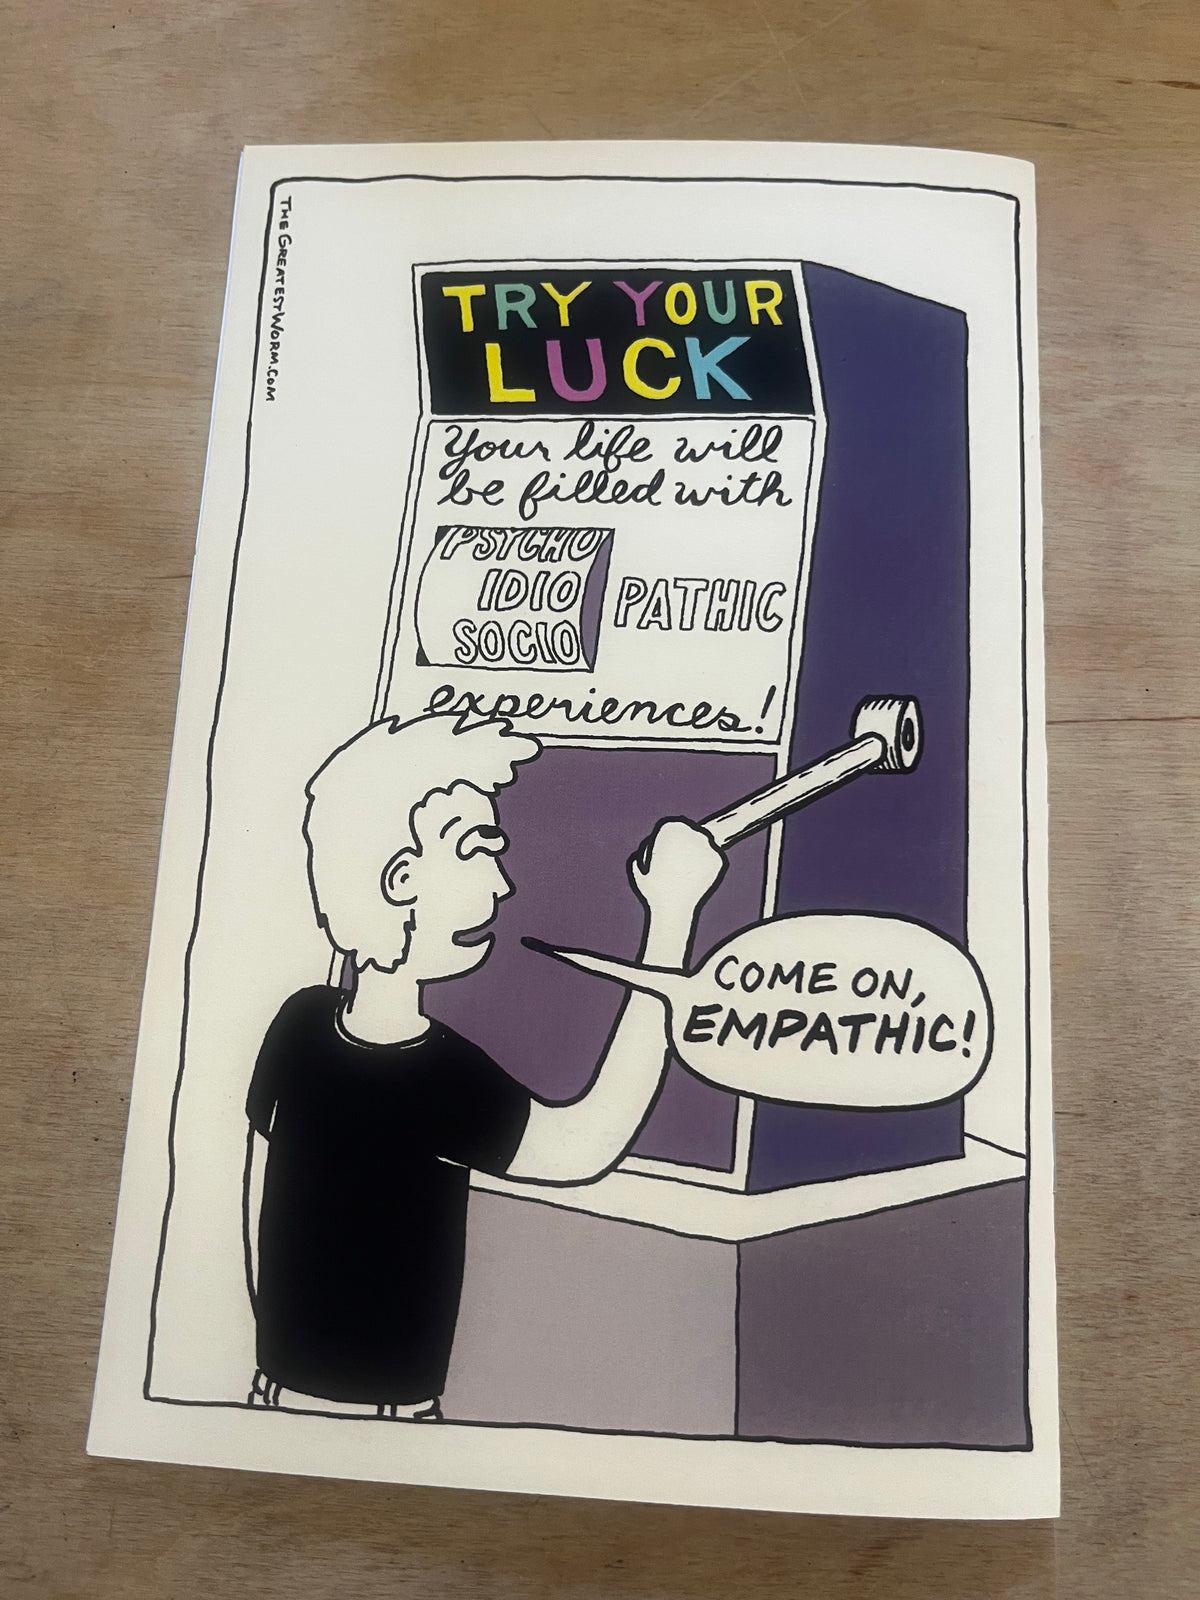 THEGREATESTWORM.COM
TRY YOUR
LUCK
Your life will
be filled with
PSYCHO
IDIO PATHIC
SOCIO
experiences!
COME ON,
EMPATHIC!